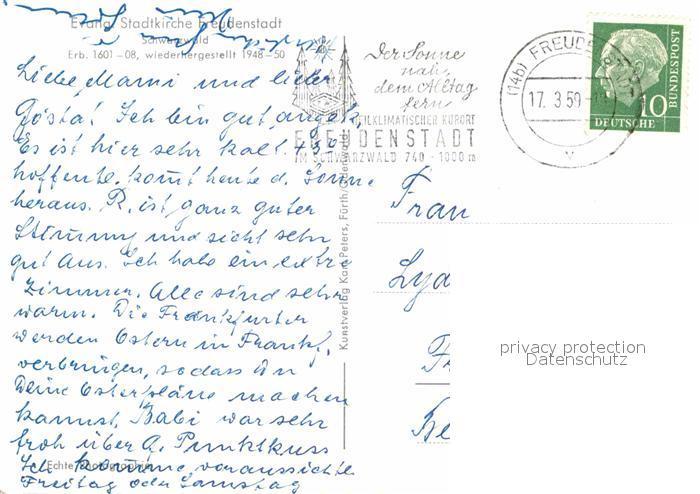 Evang. Stadtkirche Freudenstadt
Schwarzwald
Erb. 1601-08, wiederhergestellt 1948-50
Liebe Mami und lieber
Gösta! Ich bin gut angek.
Es ist hier sehr kalt +3°
hoffentl. komt heute d. Sonne
heraus. R. ist ganz guter
Stimmung und sieht sehr
gut aus. Ich habe ein extra
Zimmer. Alle sind sehr
warm. Die Frankfurter
werden Ostern in Frankf.
verbringen, sodass Du
Deine Osterpläne machen
kannst. Babi war sehr
froh über A. Punktkuss
Ich komme voraussichtl.
Freitag oder Samstag
Echte Photographie
Kunstverlag Karl Peters, Fürth/Odenwald
Der Sonne
nah,
dem Alltag
fern
HEILKLIMATISCHER KURORT
FREUDENSTADT
IM SCHWARZWALD 740 - 1000 m
(14b) FREUDENSTADT
17. 3. 59
DEUTSCHE
BUNDESPOST
10
Frau
Lyd
Fr
He
privacy protection
Datenschutz